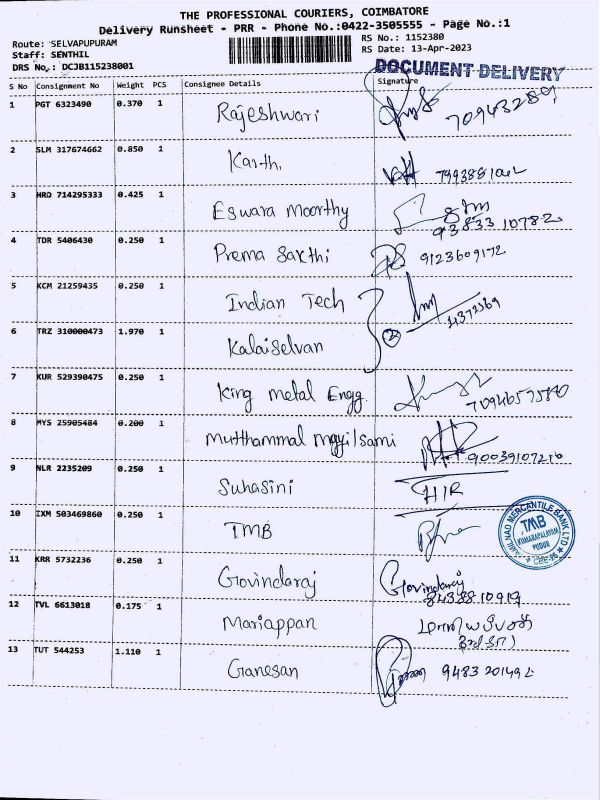 THE PROFESSIONAL COURIERS, COIMBATORE
Delivery Runsheet - PRR - Phone No.:0422-3505555 - Page No.:1
Route: SELVAPUPURAM
RS No.: 1152380
Staff: SENTHIL
RS Date: 13-Apr-2023
DRS No.: DCJB115238001
DOCUMENT DELIVERY
S No Consignment No Weight PCS Consignee Details Signature
1 PGT 6323490 0.370 1 Rajeshwari 
2 SLM 317674662 0.850 1 Karthi
3 HRD 714295333 0.425 1 Eswara Moorthy 93833 10782
4 TDR 5406430 0.250 1 Prema Sakthi 9123609172
5 KCM 21259435 0.250 1 Indian Tech
6 TRZ 310000473 1.970 1 Kalaiselvan 2
7 KUR 529390475 0.250 1 King Metal Engg.
8 MYS 25905484 0.200 1 Mutthammal
9 NLR 2235209 0.250 1 Suhasini
10 IXM 503469860 0.250 1 TMB
TAMIL NAD MERCANTILE BANK LTD
TMB
KUMARAPALAYAM
PUDUR
11 KRR 5732236 0.250 1 Govindaraj Govindaraj
8438810919
12 TVL 6613018 0.175 1 Mariappan
13 TUT 544253 1.110 1 Ganesan